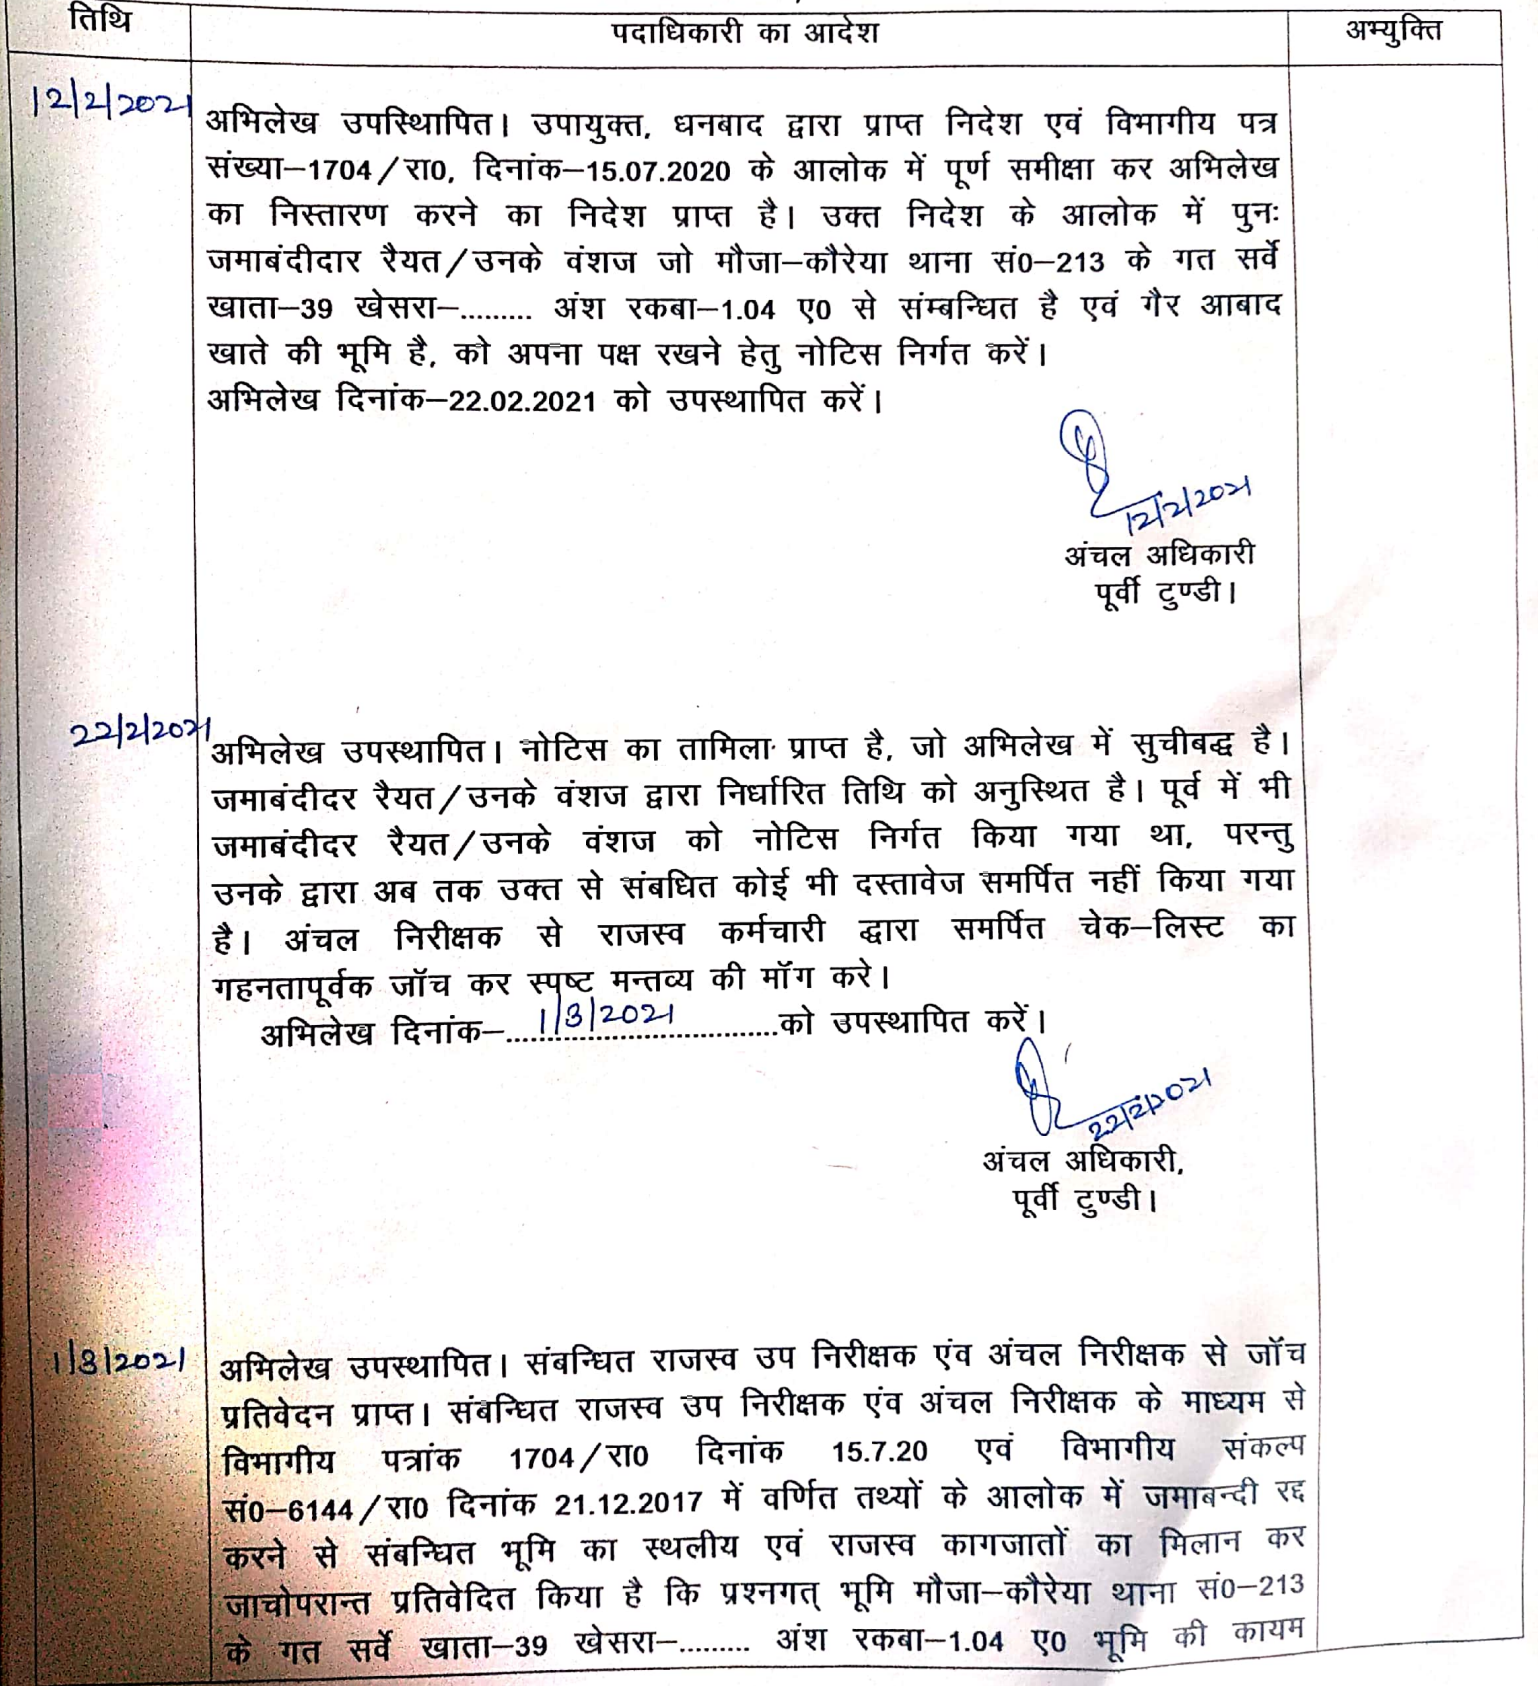 तिथि
पदाधिकारी का आदेश
अभ्युक्ति
12/2/2021
अभिलेख उपस्थिापित। उपायुक्त, धनबाद द्वारा प्राप्त निदेश एवं विभागीय पत्र
संख्या–1704/रा0, दिनांक–15.07.2020 के आलोक में पूर्ण समीक्षा कर अभिलेख
का निस्तारण करने का निदेश प्राप्त है। उक्त निदेश के आलोक में पुनः
जमाबंदीदार रैयत/उनके वंशज जो मौजा–कौरेया थाना सं0–213 के गत सर्वे
खाता–39 खेसरा–......... अंश रकबा–1.04 ए0 से संम्बन्धित है एवं गैर आबाद
खाते की भूमि है, को अपना पक्ष रखने हेतु नोटिस निर्गत करें।
अभिलेख दिनांक–22.02.2021 को उपस्थापित करें।
12/2/2021
अंचल अधिकारी
पूर्वी टुण्डी।
22/2/2021
अभिलेख उपस्थापित। नोटिस का तामिला प्राप्त है, जो अभिलेख में सुचीबद्ध है।
जमाबंदीदर रैयत/उनके वंशज द्वारा निर्धारित तिथि को अनुस्थित है। पूर्व में भी
जमाबंदीदर रैयत/उनके वंशज को नोटिस निर्गत किया गया था, परन्तु
उनके द्वारा अब तक उक्त से संबधित कोई भी दस्तावेज समर्पित नहीं किया गया
है। अंचल निरीक्षक से राजस्व कर्मचारी द्धारा समर्पित चेक–लिस्ट का
गहनतापूर्वक जॉच कर स्पष्ट मन्तव्य की मॉग करे।
अभिलेख दिनांक–....1/3/2021....को उपस्थापित करें।
22/2/2021
अंचल अधिकारी,
पूर्वी टुण्डी।
1/3/2021
अभिलेख उपस्थापित। संबन्धित राजस्व उप निरीक्षक एंव अंचल निरीक्षक से जॉच
प्रतिवेदन प्राप्त। संबन्धित राजस्व उप निरीक्षक एंव अंचल निरीक्षक के माध्यम से
विभागीय पत्रांक 1704/रा0 दिनांक 15.7.20 एवं विभागीय संकल्प
सं0–6144/रा0 दिनांक 21.12.2017 में वर्णित तथ्यों के आलोक में जमाबन्दी रद्द
करने से संबन्धित भूमि का स्थलीय एवं राजस्व कागजातों का मिलान कर
जाचोपरान्त प्रतिवेदित किया है कि प्रश्नगत् भूमि मौजा–कौरेया थाना सं0–213
के गत सर्वे खाता–39 खेसरा–......... अंश रकबा–1.04 ए0 भूमि की कायम